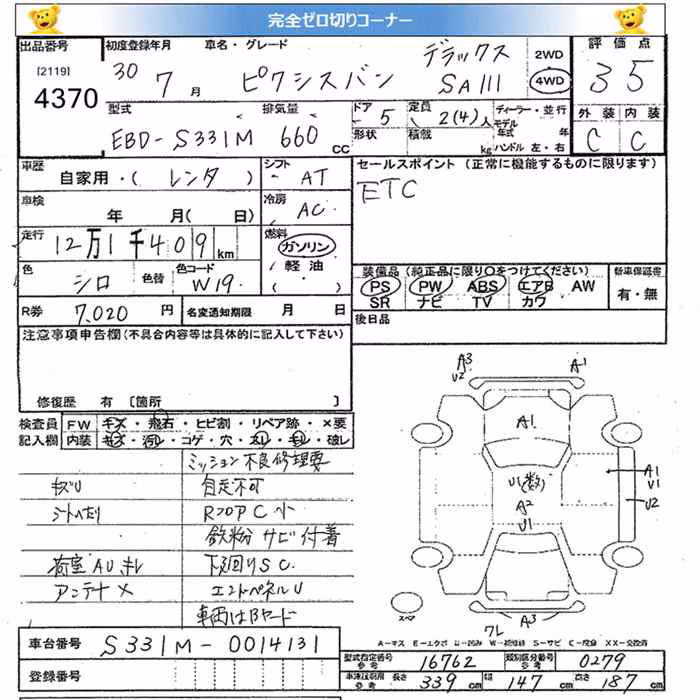 完全ゼロ切りコーナー
出品番号 初度登録年月 車名・グレード 評価点
[2119] 4370
30 7 月 ピクシスバン デラックス SAIII 2WD 4WD 35
型式 排気量 ドア 定員 ディーラー・並行 外装 内装
EBD-S331M 660 cc 5 2(4)人 モデル年式 年 C C
形状 積載 kg ハンドル 左・右
車歴 シフト セールスポイント (正常に機能するものに限ります)
自家用・( レンタ ) AT ETC
車検 年 月( 日) 冷房 AC
走行 12万1千409 km 燃料 ガソリン
軽油
( )
色 シロ 色替 色コード W19
装備品 (純正品に限り○をつけてください) 新車保証書
PS PW ABS エアB AW 有・無
SR ナビ TV カワ
R券 7,020 円 名変通知期限 月 日 後日品
注意事項申告欄 (不具合内容等は具体的に記入して下さい)
修復歴 有 [箇所 ]
検査員 FW キズ・飛石・ヒビ割・リペア跡・×要
記入欄 内装 キズ・汚レ・コゲ・穴・スレ・キレ・破レ
ミッション不良修理要
キズU 自走不可
シートへたり RフロアC小
鉄粉サビ付着
荷室AUキレ 下回りSC
アンテナ× エンドパネルU
車両はBヤード
A3
U2
A1
A1
U1(数)
A2
U1
A1
U1
U2
スペア
ワレ
A3
A-キズ E-エクボ U-凹み W-補修跡 S-サビ C-腐食 XX-交換済
車台番号 S331M-0014131
登録番号
型式指定番号 参考 16762 類別区分番号 参考 0279
車体寸用 参考 長さ 339 cm 幅 147 cm 高さ 187 cm